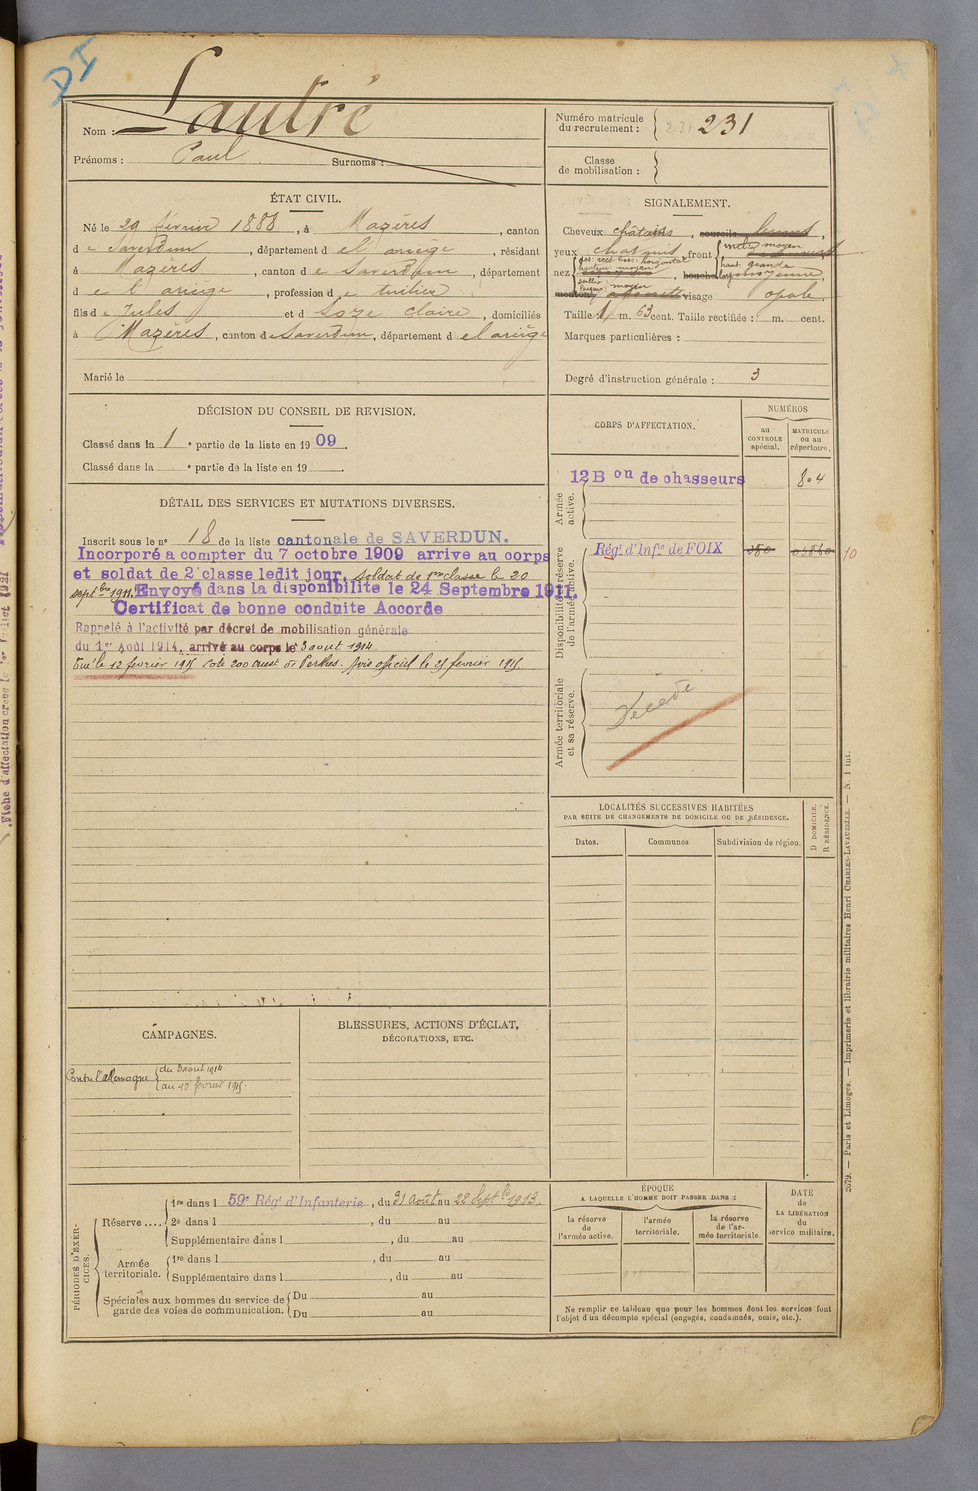 DI
Nom : Lautré
Prénoms : Paul Surnoms :
Numéro matricule du recrutement : 231
Classe de mobilisation :
ÉTAT CIVIL.
Né le 29 février 1888, à Mazères, canton
de Saverdun, département de l'ariège, résidant
à Mazères, canton de Saverdun, département
de l'ariège, profession de tuilier
fils de Jules et de Soze Claire, domiciliés
à Mazères, canton de Saverdun, département de l'ariège
Marié le
SIGNALEMENT.
Cheveux châtains, sourcils bruns,
yeux châtains front incl. moyen
haut. grande
nez dos: rect. base: horizontal
hauteur: moyen
saillie
largeur: moyen
bouche moyenne,
menton à fossette visage opale.
Taille 1 m. 63 cent. Taille rectifiée : m. cent.
Marques particulières :
Degré d'instruction générale : 3
DÉCISION DU CONSEIL DE REVISION.
Classé dans la 1e partie de la liste en 1909.
Classé dans la e partie de la liste en 19
DÉTAIL DES SERVICES ET MUTATIONS DIVERSES.
Inscrit sous le n° 18 de la liste cantonale de SAVERDUN.
Incorporé a compter du 7 octobre 1909 arrive au corps
et soldat de 2e classe ledit jour, soldat de 1re classe le 20
septbre 1911. Envoyé dans la disponibilité le 24 Septembre 1911.
Certificat de bonne conduite Accorde
Rappelé à l'activité par décret de mobilisation générale
du 1er Août 1914, arrivé au corps le 3 aout 1914
Tué le 12 février 1915 cote 200 ouest de Perthes. Avis officiel le 25 février 1915.
CORPS D'AFFECTATION.
NUMÉROS
au CONTROLE spécial.
MATRICULE ou au répertoire.
Armée active.
12 Bon de chasseurs 804
Disponibilité et réserve de l'armée active.
Régt d'Infie de FOIX 10
Armée territoriale et sa réserve.
Décédé
LOCALITÉS SUCCESSIVES HABITÉES
PAR SUITE DE CHANGEMENTS DE DOMICILE OU DE RÉSIDENCE.
Dates. Communes Subdivision de région. D DOMICILE. R RÉSIDENCE.
CAMPAGNES.
Contre l'allemagne du 3 aout 1914
au 12 février 1915.
BLESSURES, ACTIONS D'ÉCLAT,
DÉCORATIONS, ETC.
PÉRIODES D'EXERCICES.
Réserve .... 1re dans l 59e Régt d'Infanterie, du 31 Août au 22 Septbre 1913.
2e dans l , du au
Supplémentaire dans l , du au
Armée territoriale. 1re dans l , du au
Supplémentaire dans l , du au
Spéciales aux hommes du service de garde des voies de communication. Du au
Du au
ÉPOQUE
A LAQUELLE L'HOMME DOIT PASSER DANS :
la réserve de l'armée active.
l'armée territoriale.
la réserve de l'armée territoriale.
DATE de LA LIBÉRATION du service militaire.
Ne remplir ce tableau que pour les hommes dont les services font
l'objet d'un décompte spécial (engagés, condamnés, omis, etc.).
2679. — Paris et Limoges. — Imprimerie et librairie militaires Henri CHARLES-LAVAUZELLE. — N. 1 int.